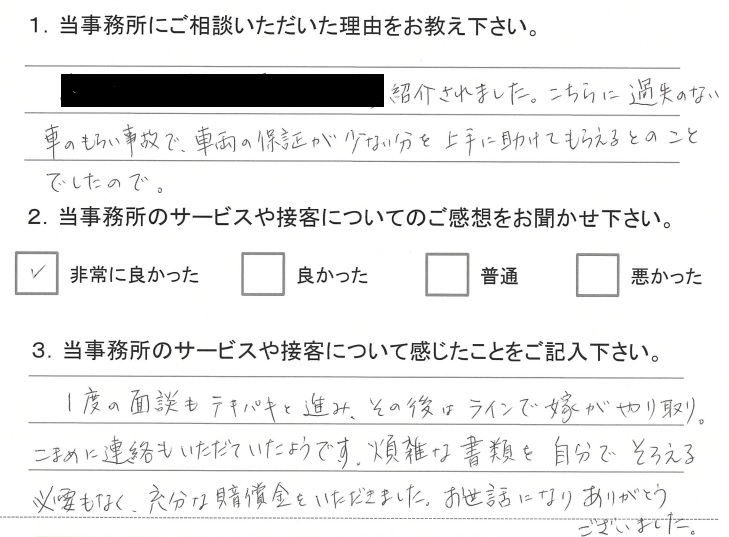 1．当事務所にご相談いただいた理由をお教え下さい。
紹介されました。こちらに過失のない
車のもらい事故で、車両の保証が少ない分を上手に助けてもらえるとのこと
でしたので。
2．当事務所のサービスや接客についてのご感想をお聞かせ下さい。
✓ 非常に良かった 良かった 普通 悪かった
3．当事務所のサービスや接客について感じたことをご記入下さい。
1度の面談もテキパキと進み、その後はラインで嫁がやり取り。
こまめに連絡もいただていたようです。煩雑な書類を自分でそろえる
必要もなく、充分な賠償金をいただきました。お世話になりありがとう
ございました。